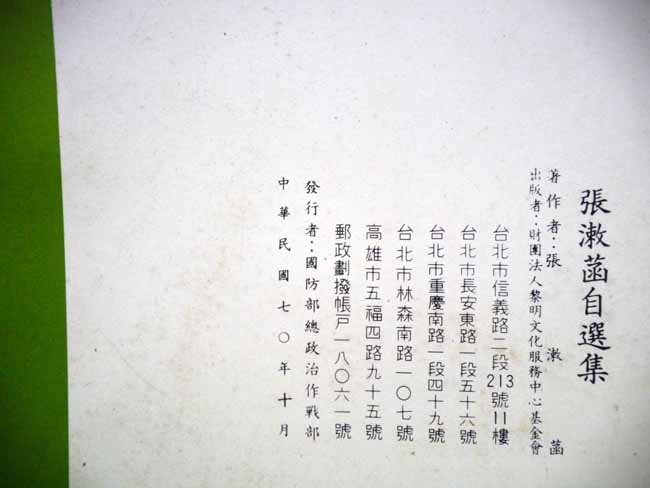 張漱菡自選集
著作者：張漱菡
出版者：財團法人黎明文化服務中心基金會
台北市信義路二段213號11樓
台北市長安東路一段五十六號
台北市重慶南路一段四十九號
台北市林森南路一〇七號
高雄市五福四路九十五號
郵政劃撥帳戶一八〇六一號
發行者：國防部總政治作戰部
中華民國七〇年十月